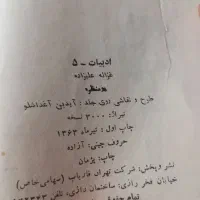 ادبیات - ۵
غزاله علیزاده
دو منظره
طرح و نقاشی روی جلد : آیدین آغداشلو
تیراژ ۳۰۰۰ نسخه
چاپ اول : تیرماه ۱۳۶۳
حروف چینی : آزاده
چاپ : پژمان
نشر و پخش : شرکت تهران فاریاب (سهامی خاص)
خیابان فخر رازی، ساختمان رازی، تلفن